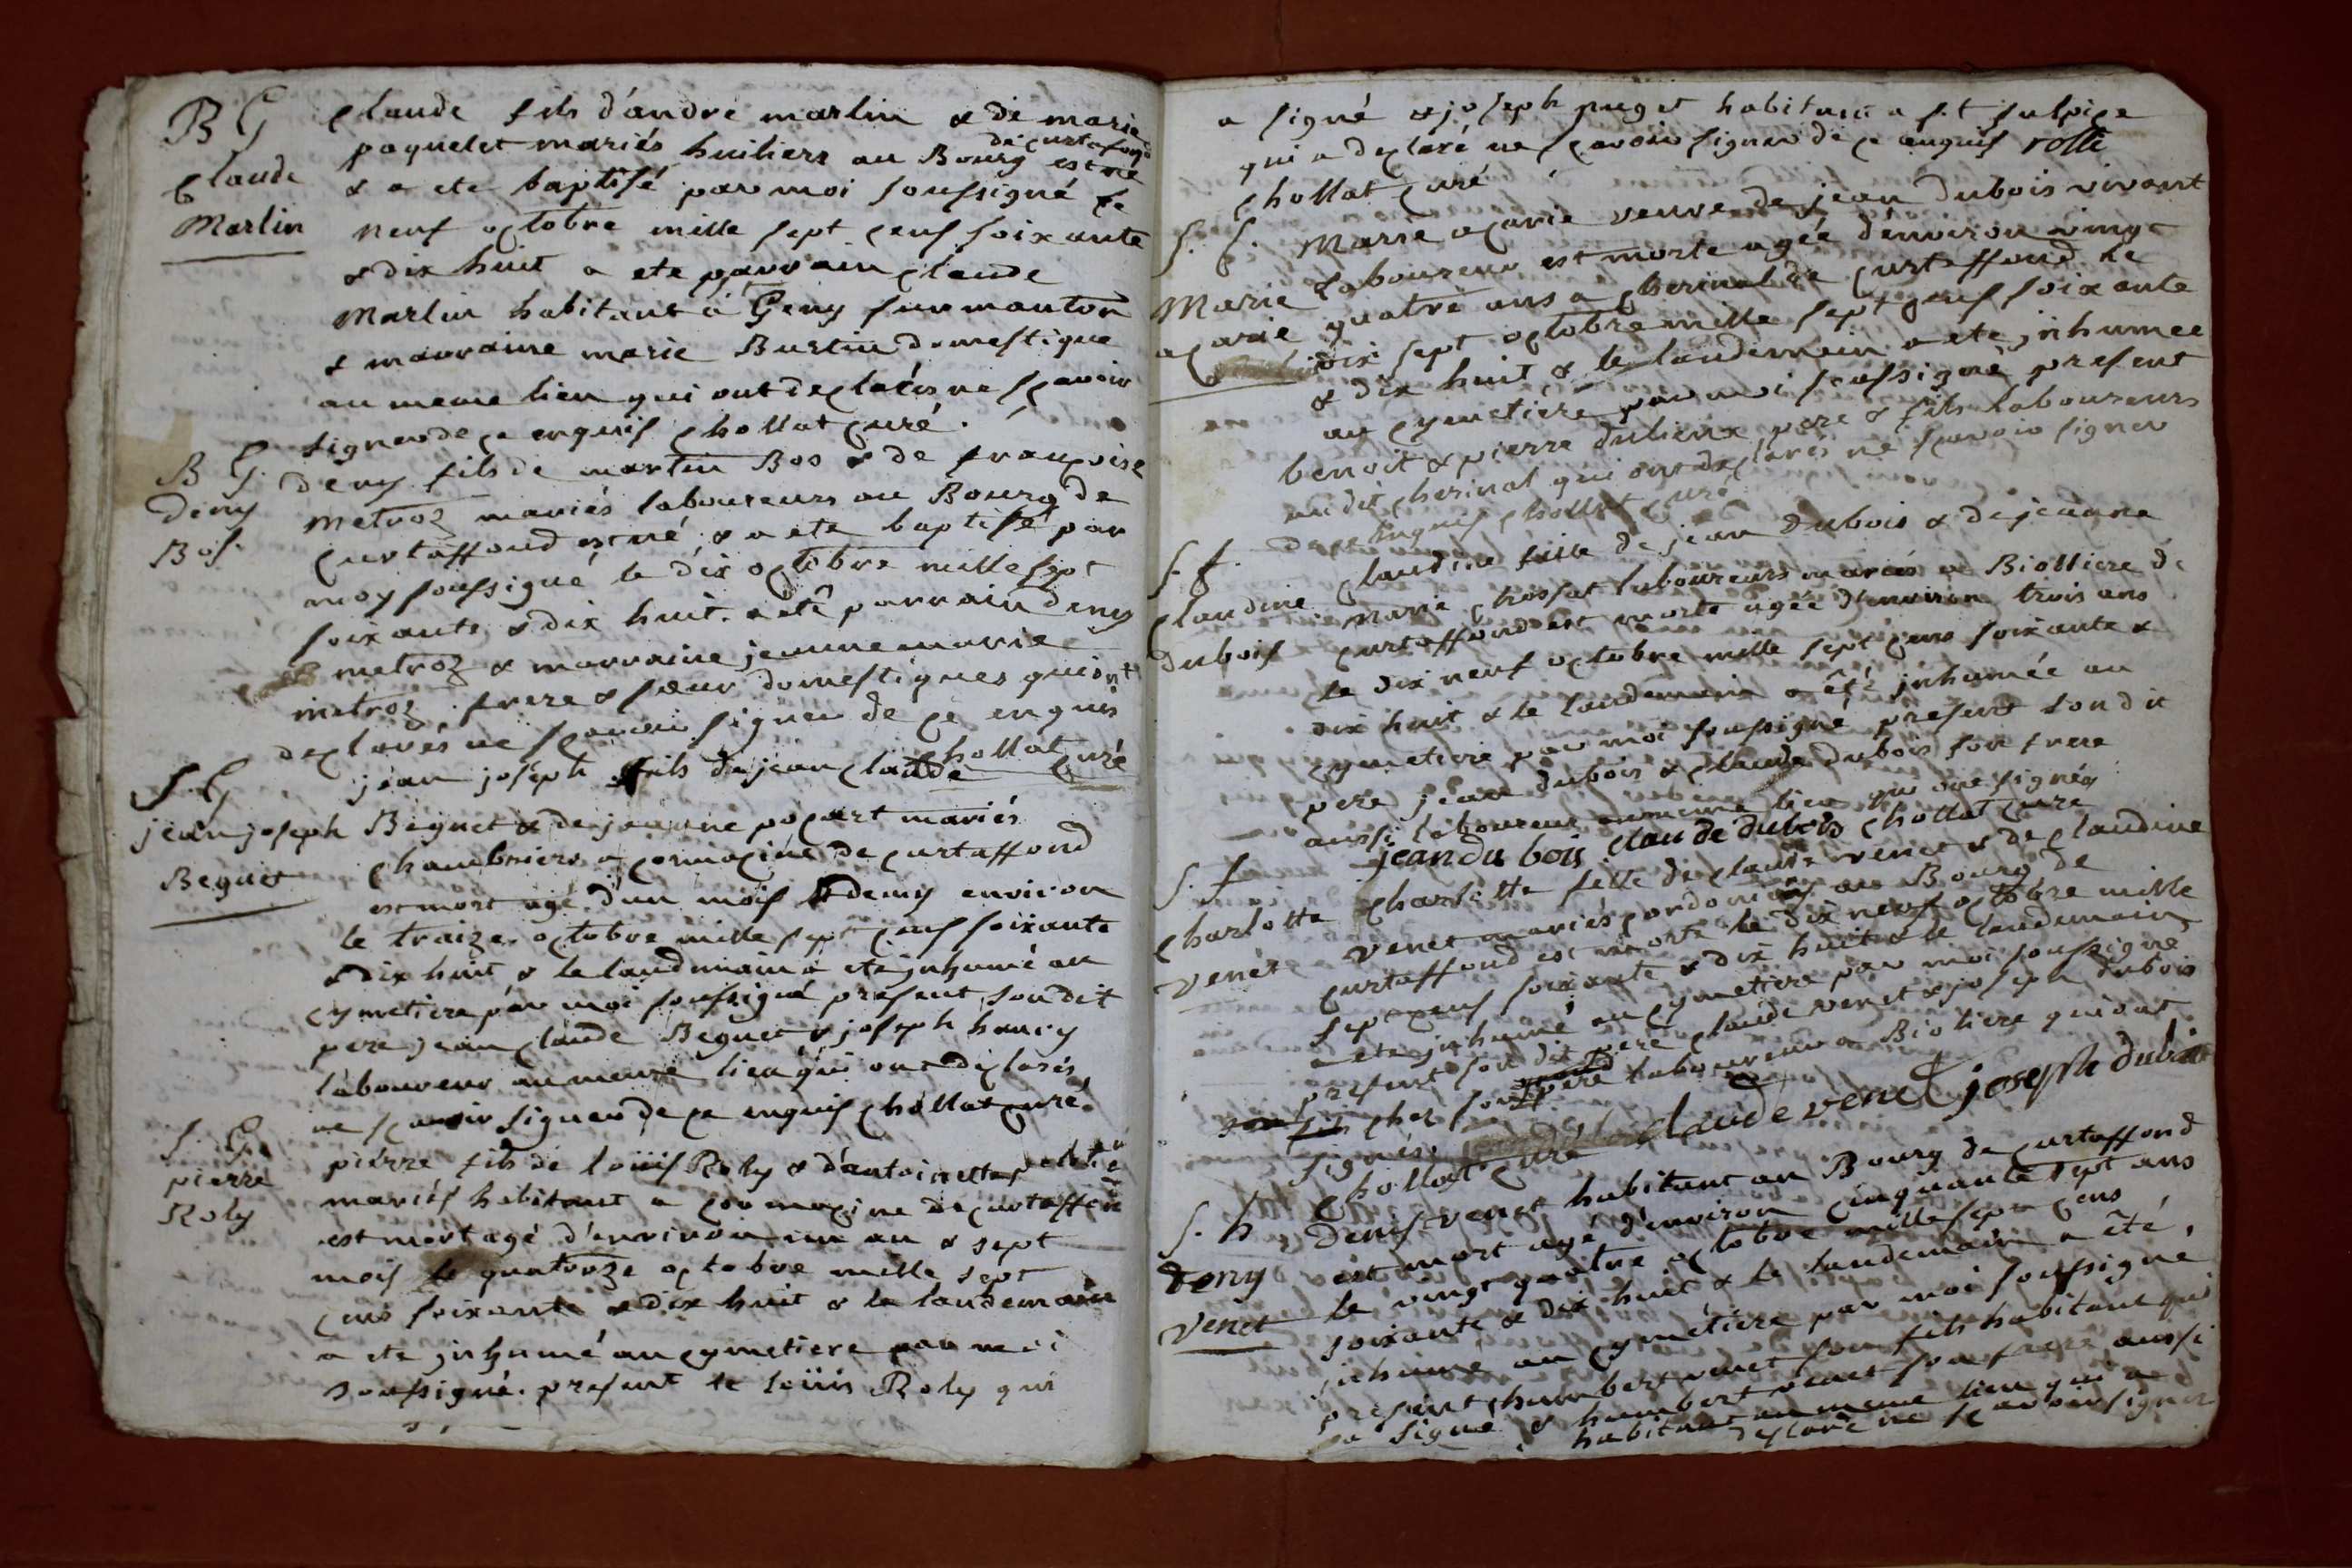 B G
Claude
Marlin
Claude fils d'andré marlin & de marie
paquelet mariés huiliers au Bourg de curtafond est né
& a ete baptisé par moi soussigné le
neuf octobre mille sept cens soixante
& dix huit a ete parrain claude
Marlin habitant à Geny sur manton
& marraine marie Burtin domestique
au meme lieu qui ont declarés ne scavoir
signer de ce enquis chollat curé.
B G.
Deny
Bos.
deny fils de martin Bos & de françoise
metroz mariés laboureurs au Bourg de
Curtaffond est né, & a ete baptisé par
moy soussigné le dix octobre mille sept
soixante & dix huit. a été parrain deny
metroz & marraine jeanne marie
metroz frere & sœur domestiques qui ont
declarés ne scavoir signer de ce enquis
chollat curé
S. G
jean joseph
Beguet
jean joseph fils de jean claude
Beguet & de jeanne pocart mariés
chambriers a cormocine de curtaffond
est mort agé d'un mois & demy environ
le traize octobre mille sept cens soixante
& dix huit & le landemain a ete jnhumé au
cymetiere par moi soussigné present son dit
pere jean claude Beguet & joseph
laboureur au meme lieu qui ont declarés
ne scavoir signer de ce enquis chollat curé
S. G.
pierre
Roly
pierre fils de loüis Roly & d'antoinette
mariés habitant a cormocine de curtaffon
est mort agé d'environ un an & sept
mois le quatorze octobre mille sept
cens soixante & dix huit & le landemain
a ete jnhumé au cymetiere par moi
soussigné. present le loüis Roly qui
a signé & joseph puget habitant a s.t sulpice
qui a declaré ne scavoir signer de ce enquis rolli
chollat curé
S. f.
Marie
acarie
Marie acarie veuve de jean dubois vivant
laboureur est morte agée d'environ vingt
quatre ans a cherinal de curtaffond le
dix sept octobre mille sept cens soixante
& dix huit & le landemain a ete jnhumee
au cymetiere par moi soussigné present
benoit & pierre dulieux pere & fils laboureurs
au dit cherinal qui ont declarés ne scavoir signer
de ce enquis chollat curé
S. f.
Claudine
Dubois
Claudine fille de jean Dubois & de jeanne
marie chossat laboureurs mariés a Biolliere de
curtaffond est morte agée d'environ trois ans
le dix neuf octobre mille sept cens soixante &
dix huit & le landemain a été jnhumée au
cymetiere par moi soussigné present son dit
pere jean dubois & claude dubois son frere
aussi laboureur au meme lieu qui ont signés
jean du bois claude dubois chollat curé
S. f
Charlotte
venet
Charlotte fille de claude venet & de claudine
venet mariés cordoniers au Bourg de
curtaffond est morte le dix neuf octobre mille
sept cens soixante & dix huit & le landemain
a ete jnhumé au cymetiere par moi soussigné
present son dit pere claude venet & joseph dubois
son fils chez son grand pere laboureur a Bioliere qui ont
signés.
chollat curé claude venet joseph dubois
S. h
Deny
venet
Denis venet habitant au Bourg de curtaffond
est mort agé d'environ cinquante sept ans
le vingt quatre octobre mille sept cens
soixante & dix huit & le landemain a été
jnhumé au cymetiere par moi soussigné
present humbert venet son fils habitant qui
a signé & humbert venet son frere aussi
habitant au meme lieu qui a
declaré ne scavoir signer